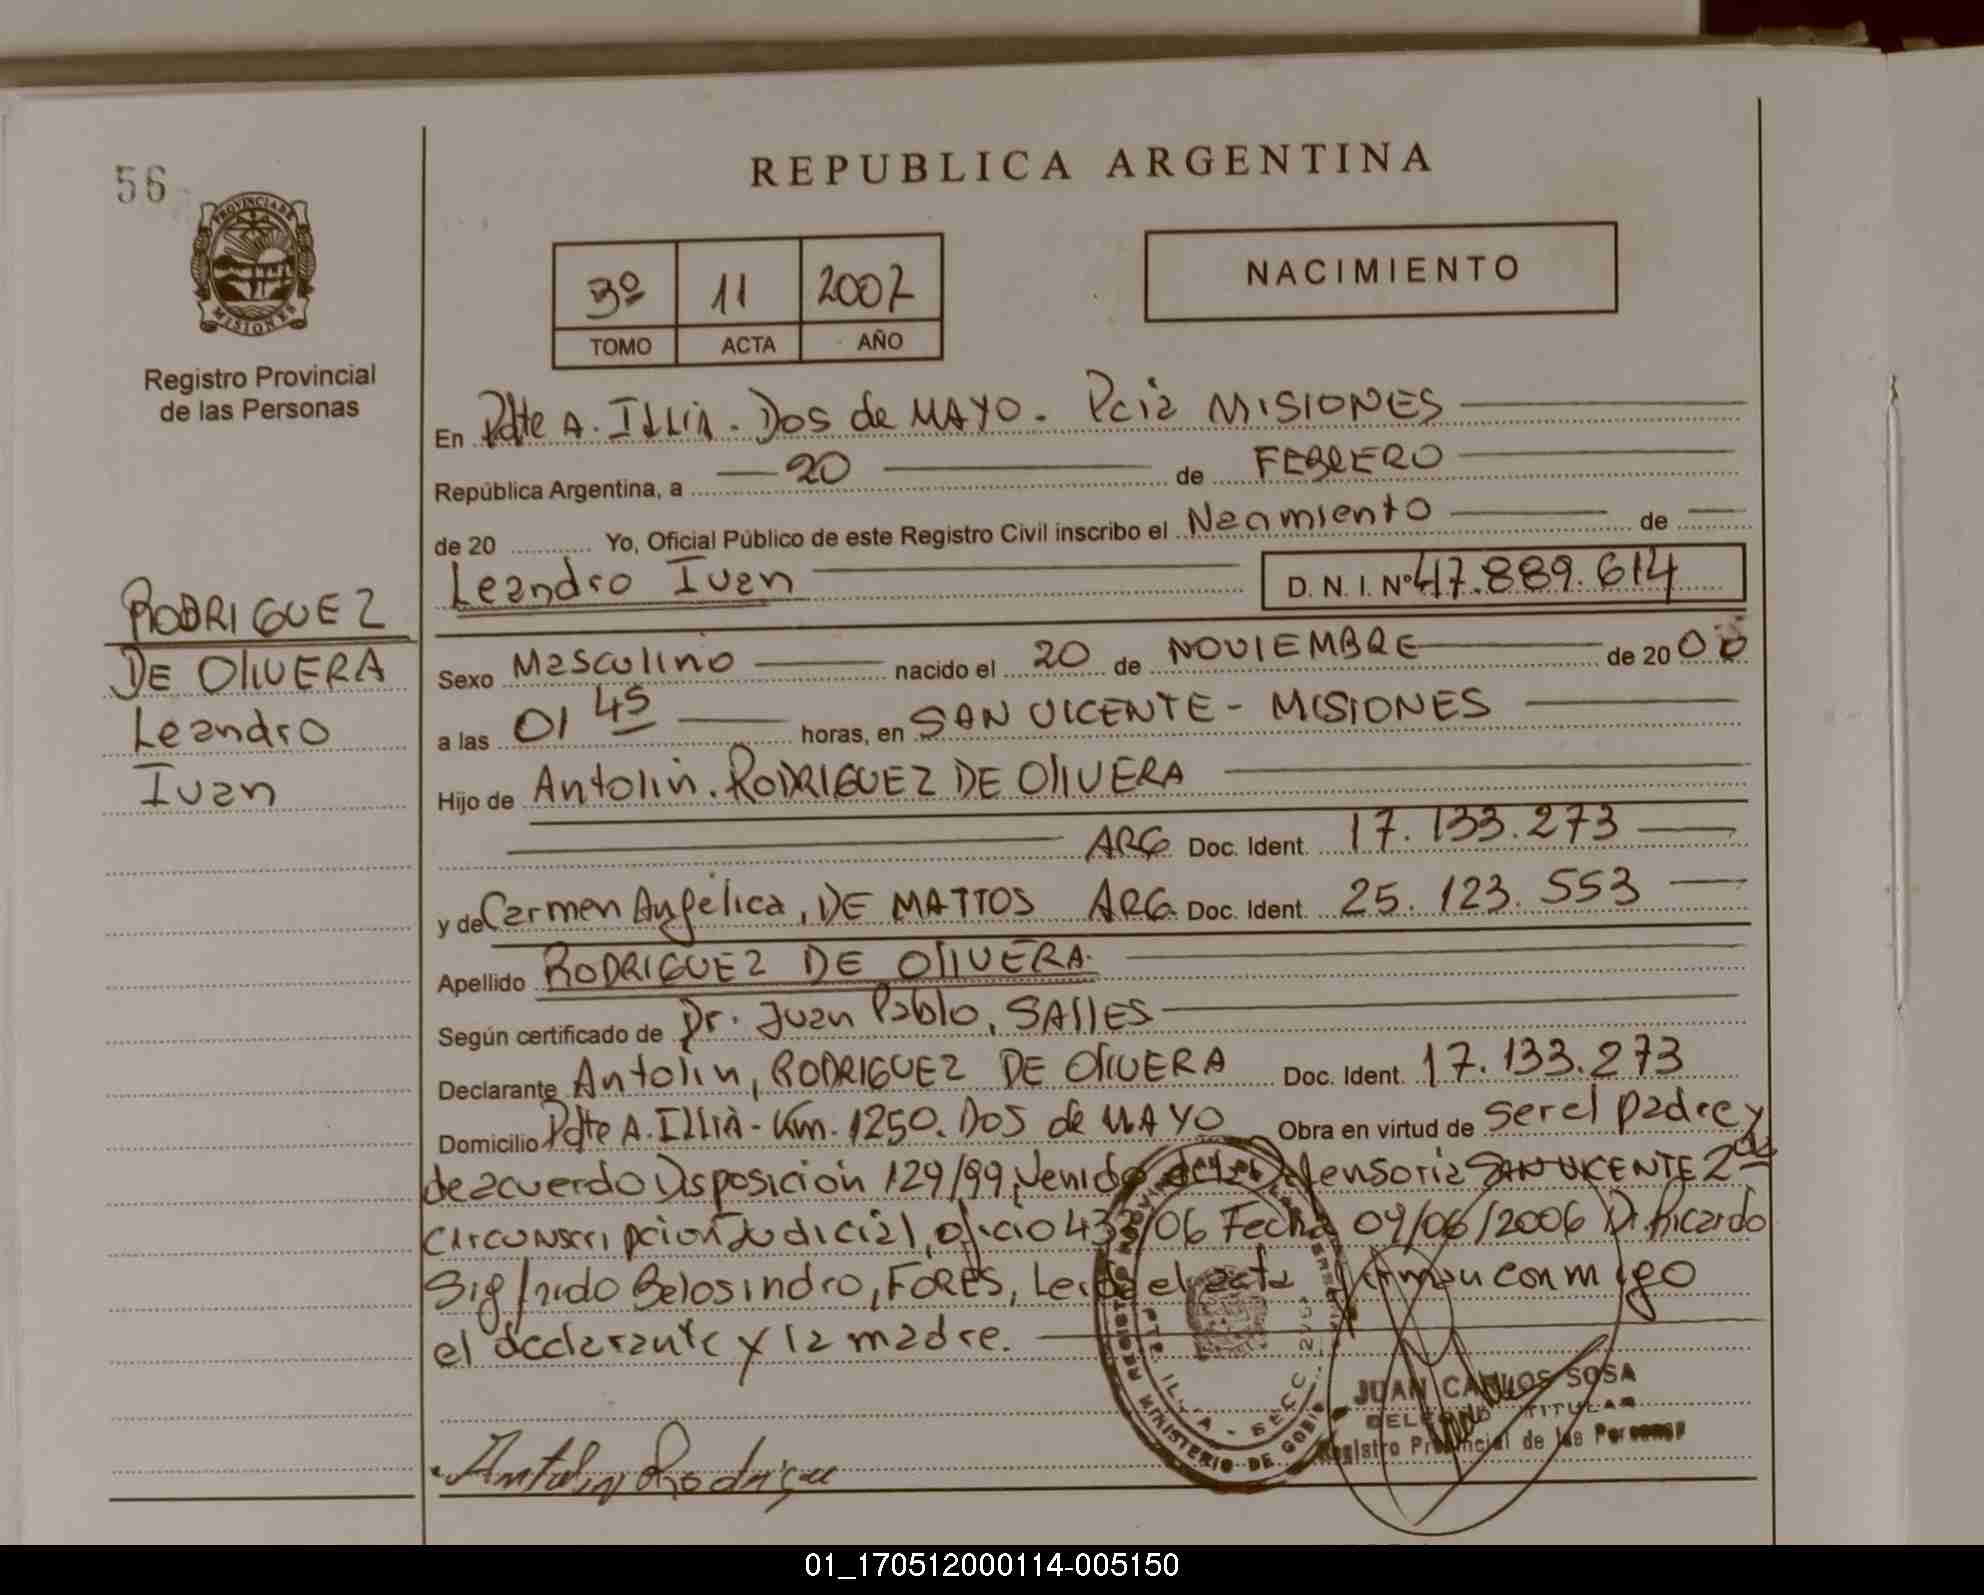 56
REPUBLICA ARGENTINA
PROVINCIA DE
MISIONES
Registro Provincial
de las Personas
3º 11 2007
TOMO ACTA AÑO
NACIMIENTO
En Pdte A. Illia. Dos de MAYO. Pcia MISIONES
República Argentina, a 20 de FEBRERO
de 20 Yo, Oficial Público de este Registro Civil inscribo el Nacimiento de
Leandro Ivan D. N. I. Nº 47.889.614
RODRIGUEZ
DE OlIVERA
Leandro
Ivan
Sexo Masculino nacido el 20 de NOVIEMBRE de 20 06
a las 01 45 horas, en SAN VICENTE - MISIONES
Hijo de Antolin. RODRIGUEZ DE OlIVERA
ARG Doc. Ident. 17.133.273
y de Carmen Angélica, DE MATTOS ARG. Doc. Ident. 25.123.553
Apellido RODRIGUEZ DE OlIVERA.
Según certificado de Dr. Juan Pablo, SAllES
Declarante Antolin, RODRIGUEZ DE OlIVERA Doc. Ident. 17.133.273
Domicilio Pdte A. Illia - Km. 1250. Dos de MAYO Obra en virtud de ser el padre y
de acuerdo Disposición 129/99, venido de la Defensoria SAN VICENTE 2da
Circunscripcion Judicial, oficio 433/06 Fecha 09/06/2006 Dr. Ricardo
Sigfrido Belosindro, FORES, Leida el acta firman conmigo
el declarante y la madre.
JUAN CARLOS SOSA
DELEGADO TITULAR
Registro Provincial de las Personas
MINISTERIO DE GOBIE
Antolin Rodrigue
01_170512000114-005150